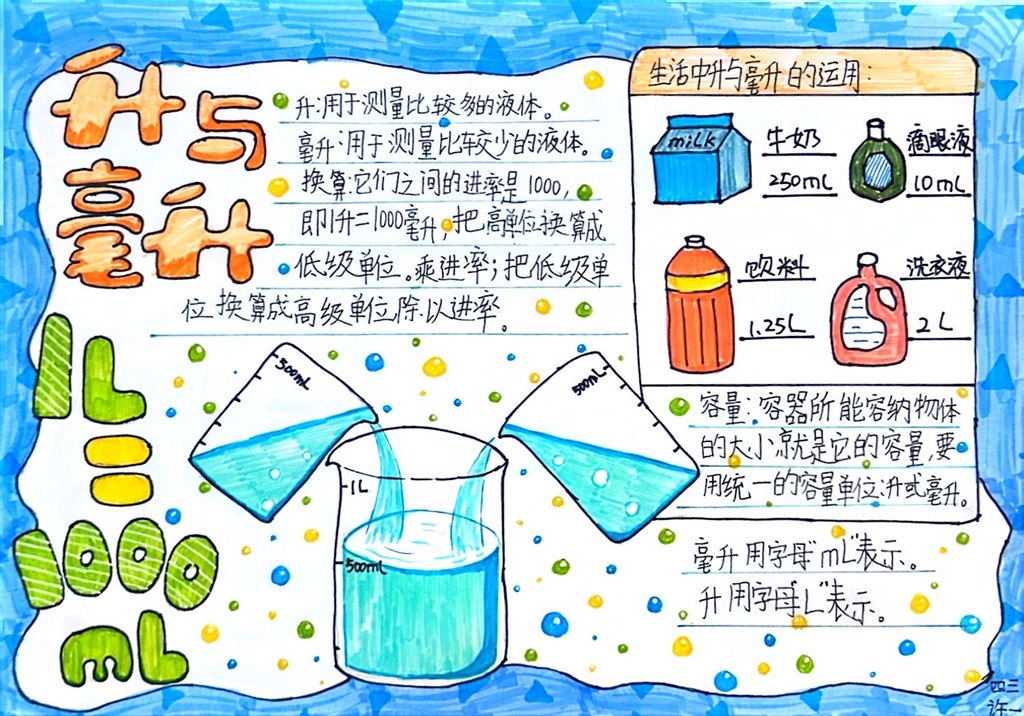 升与
毫升
1L
=
1000
mL
升:用于测量比较多的液体。
毫升:用于测量比较少的液体。
换算:它们之间的进率是1000,
即1升=1000毫升,把高单位换算成
低级单位。乘进率;把低级单
位换算成高级单位除以进率。
500mL
500mL
1L
500mL
生活中升与毫升的运用:
milk
牛奶
250mL
滴眼液
10mL
饮料
1.25L
洗衣液
2L
容量:容器所能容纳物体
的大小就是它的容量,要
用统一的容量单位:升或毫升。
毫升用字母"mL"表示。
升用字母"L"表示。
四三
许一